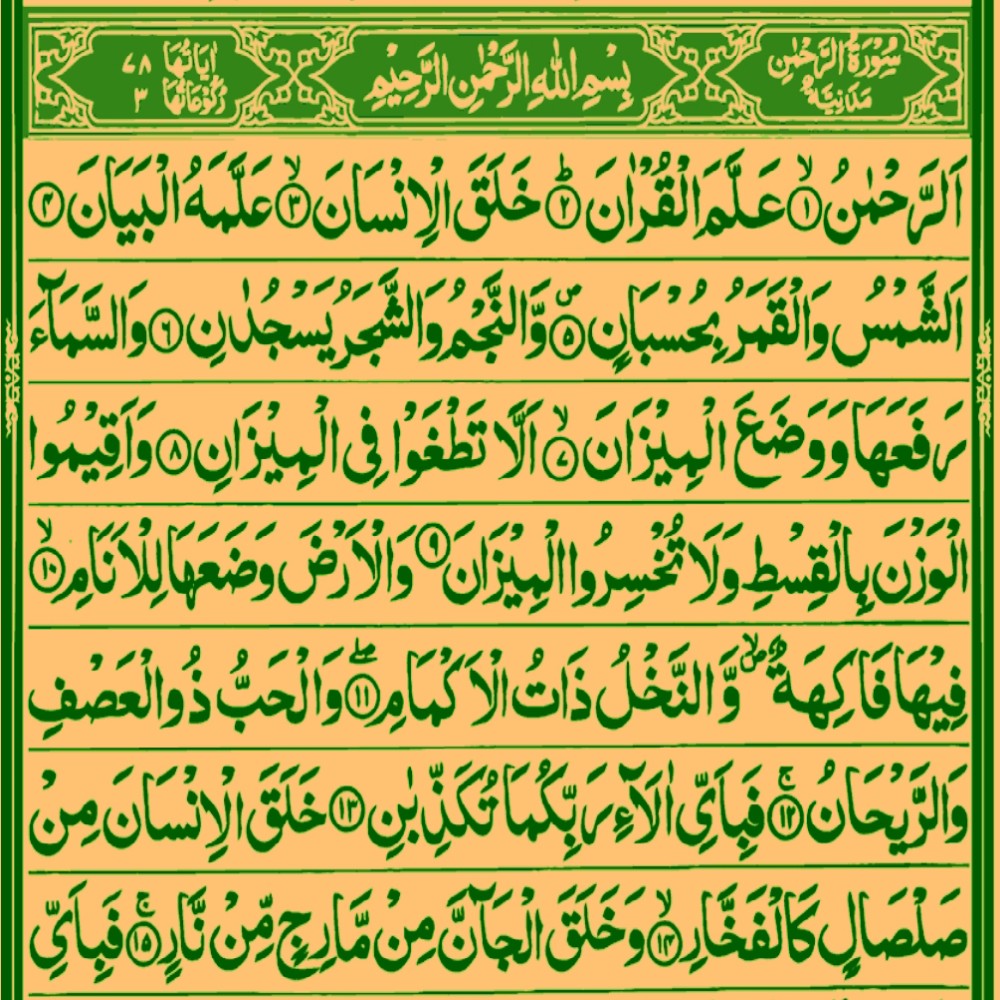 سُوْرَةُ الرَّحْمٰنِ مَدَنِيَّةٌ بِسْمِ اللّٰهِ الرَّحْمٰنِ الرَّحِيْمِ اٰيَاتُهَا ٧٨ رُكُوْعَاتُهَا ٣
اَلرَّحْمٰنُ ۙ﴿١﴾ عَلَّمَ الْقُرْاٰنَ ؕ﴿٢﴾ خَلَقَ الْاِنْسَانَ ۙ﴿٣﴾ عَلَّمَهُ الْبَيَانَ ﴿٤﴾
اَلشَّمْسُ وَالْقَمَرُ بِحُسْبَانٍ ۪﴿٥﴾ وَّالنَّجْمُ وَالشَّجَرُ يَسْجُدٰنِ ﴿٦﴾ وَالسَّمَآءَ
رَفَعَهَا وَوَضَعَ الْمِيْزَانَ ۙ﴿٧﴾ اَلَّا تَطْغَوْا فِى الْمِيْزَانِ ﴿٨﴾ وَاَقِيْمُوا
الْوَزْنَ بِالْقِسْطِ وَلَا تُخْسِرُوا الْمِيْزَانَ ﴿٩﴾ وَالْاَرْضَ وَضَعَهَا لِلْاَنَامِ ۙ﴿١٠﴾
فِيْهَا فَاكِهَةٌ ۪ۙ وَّالنَّخْلُ ذَاتُ الْاَكْمَامِ ۖ﴿١١﴾ وَالْحَبُّ ذُوالْعَصْفِ
وَالرَّيْحَانُ ۚ﴿١٢﴾ فَبِاَىِّ اٰلَآءِ رَبِّكُمَا تُكَذِّبٰنِ ﴿١٣﴾ خَلَقَ الْاِنْسَانَ مِنْ
صَلْصَالٍ كَالْفَخَّارِ ۙ﴿١٤﴾ وَخَلَقَ الْجَآنَّ مِنْ مَّارِجٍ مِّنْ نَّارٍ ۚ﴿١٥﴾ فَبِاَىِّ